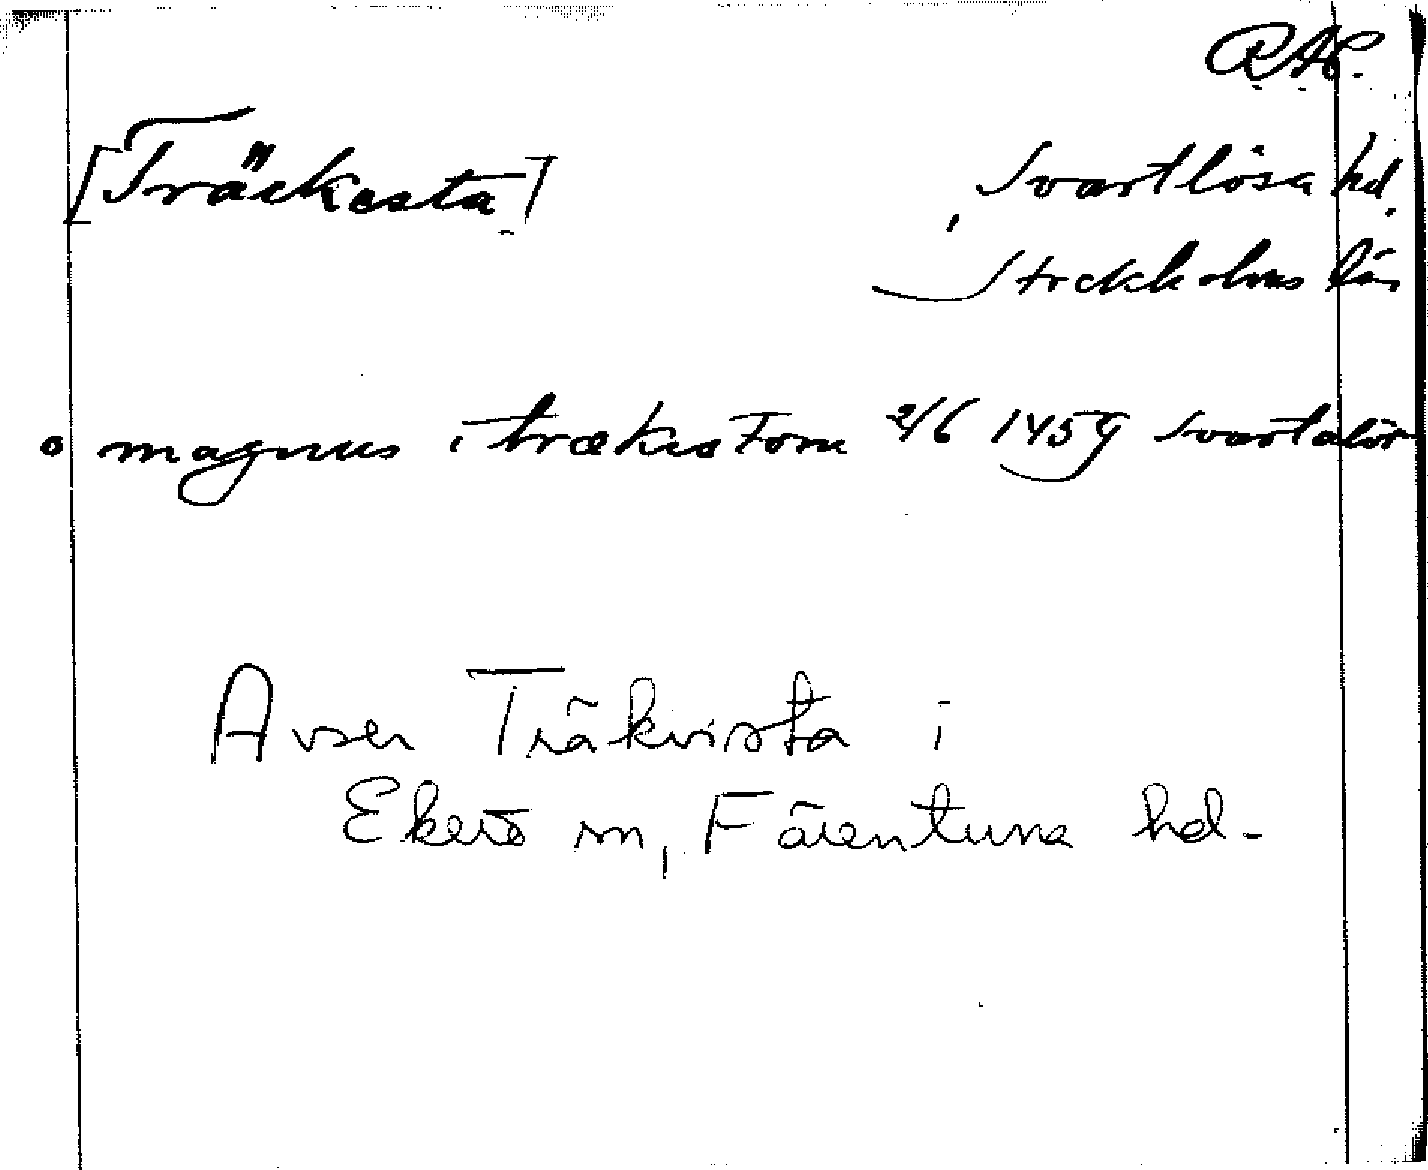 RAP.
[Träckesta]
Svartlösa hd.
Stockholms län
magnus i trækestom 2/6 1459 Svartalös
Avser Träkvista i
Ekerö sn, Färentuna hd.